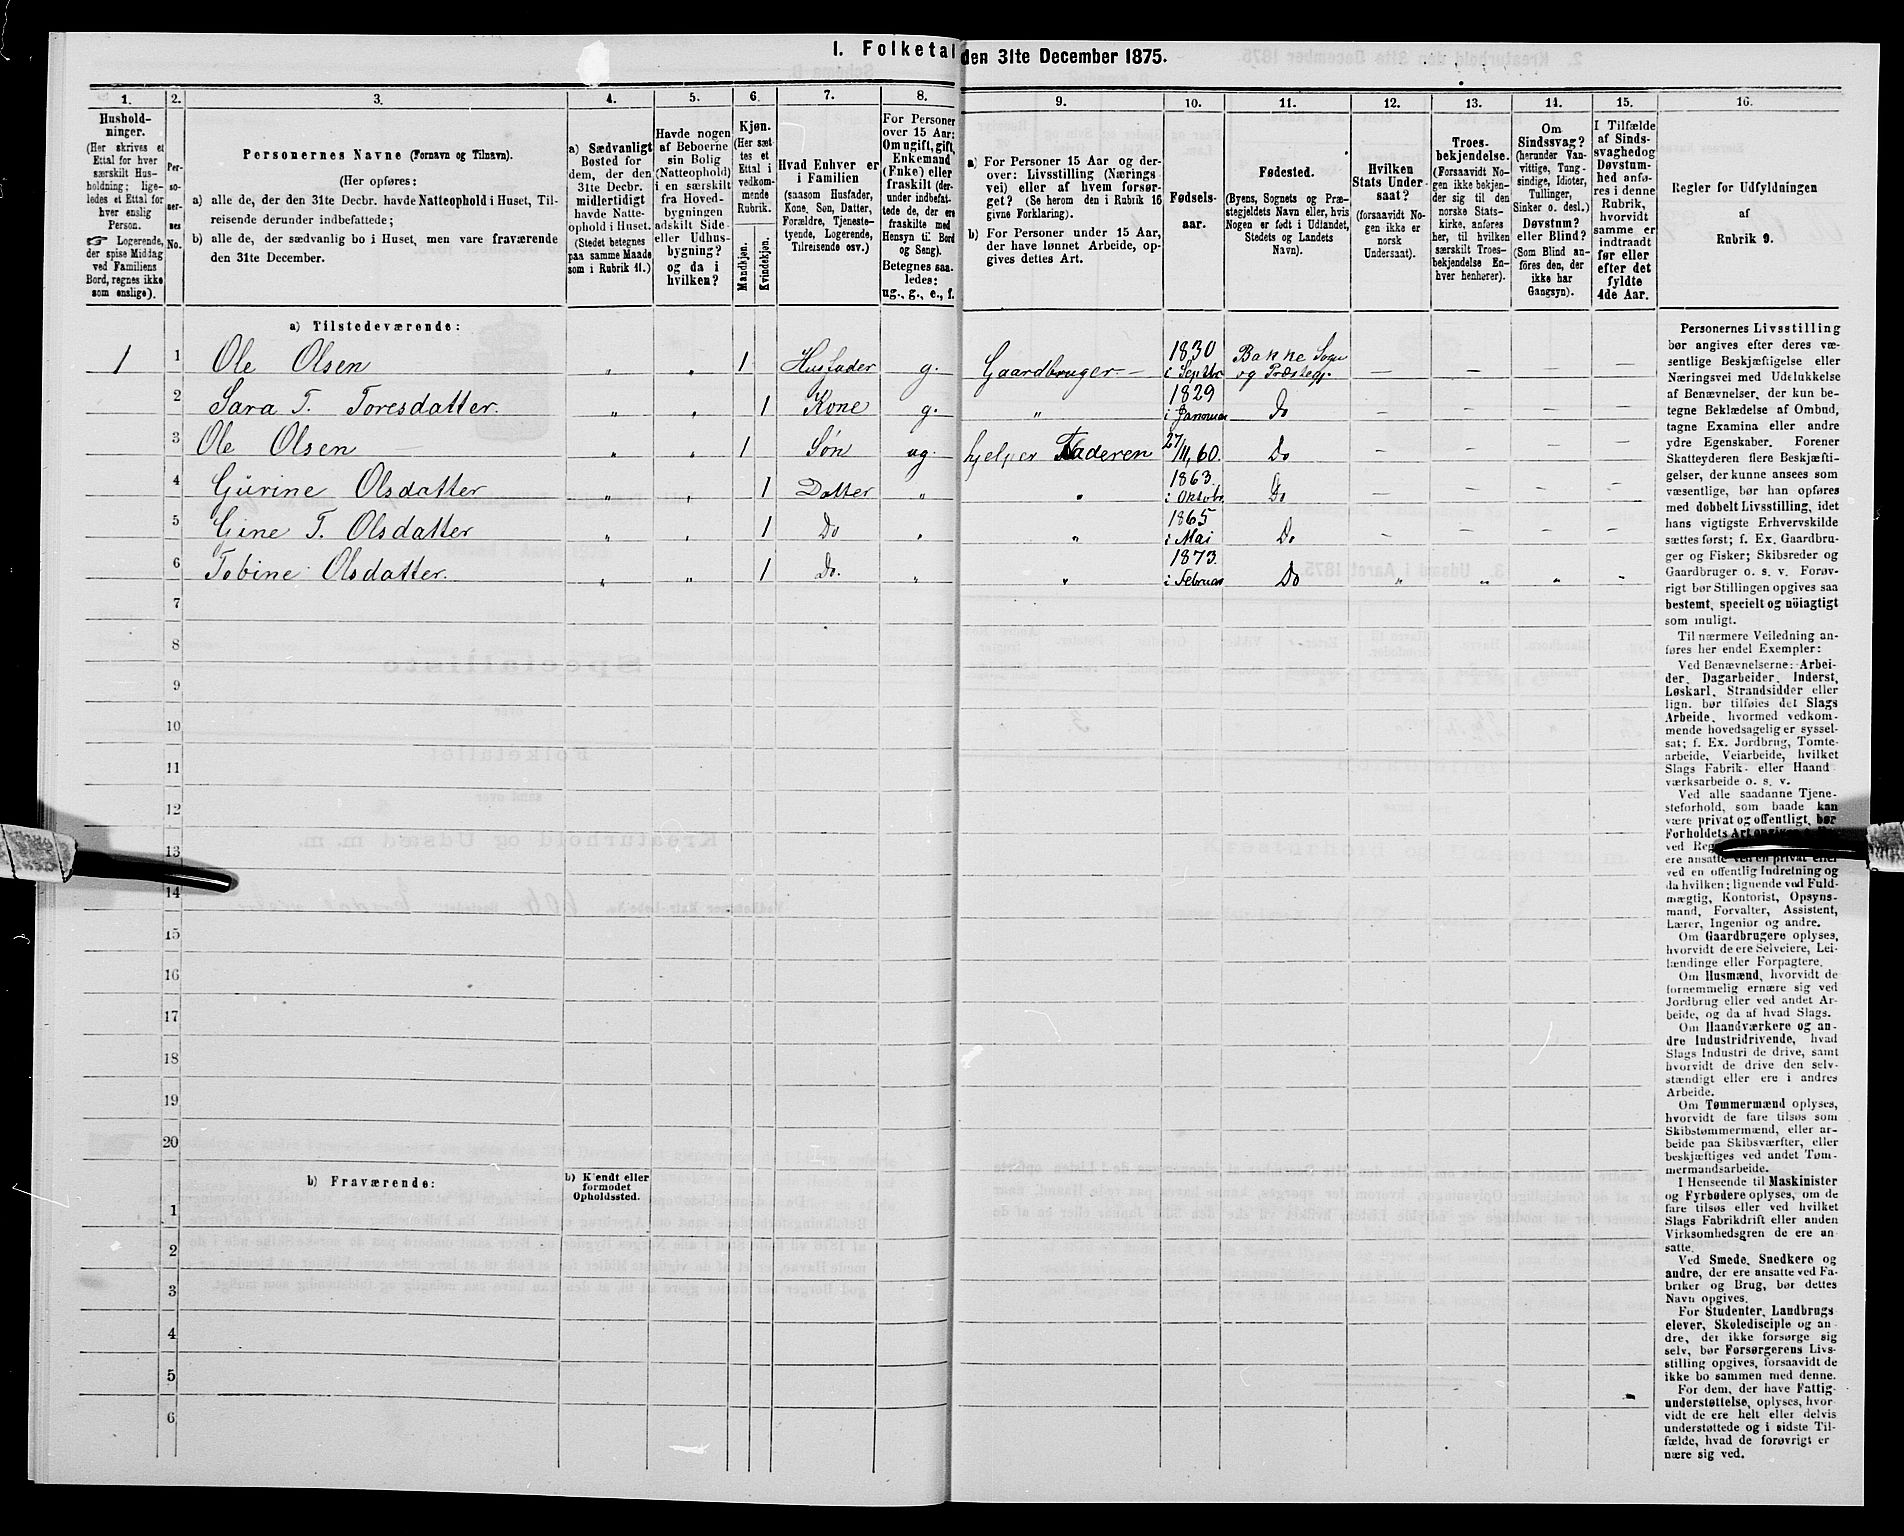 I. Folketal den 31te December 1875.
1. 2. 3. 4. 5. 6. 7. 8. 9. 10. 11. 12. 13. 14. 15. 16.
Hushold-
ninger.
(Her skrives et
Ettal for hver
særskilt Hus-
holdning; lige-
ledes et Ettal for
hver enslig
Person.
☞ Logerende,
der spise Middag
ved Familiens
Bord, regnes ikke
som enslige).
Per-
so-
ner-
nes
No.
Personernes Navne (Fornavn og Tilnavn).
(Her opføres:
a) alle de, der den 31te Decbr. havde Natteophold i Huset, Til-
reisende derunder indbefattede;
b) alle de, der sædvanlig bo i Huset, men vare fraværende
den 31te December.
a) Sædvanligt
Bosted for
dem, der den
31te Decbr.
midlertidigt
havde Natte-
ophold i Huset.
(Stedet betegnes
paa samme Maade
som i Rubrik 11.)
Havde nogen
af Beboerne
sin Bolig
(Natteophold)
i en særskilt
fra Hoved-
bygningen
adskilt Side-
eller Udhus-
bygning?
og da i
hvilken?
Kjøn.
(Her sæt-
tes et
Ettal i
vedkom-
mende
Rubrik.
Mandkjøn.
Kvindekjøn.
Hvad Enhver er
i Familien
(saasom Husfader,
Kone, Søn, Datter,
Forældre, Tjeneste-
tyende, Logerende,
Tilreisende osv.)
For Personer
over 15 Aar:
Om ugift, gift,
Enkemand
(Enke) eller
fraskilt (der-
under indbefat-
tede de, der ere
fraskilte med
Hensyn til Bord
og Seng).
Betegnes saa-
ledes:
ug., g., e., f.
a) For Personer 15 Aar og der-
over: Livsstilling (Nærings
vei) eller af hvem forsør-
get? (Se herom den i Rubrik 16
givne Forklaring).
b) For Personer under 15 Aar,
der have lønnet Arbeide, op-
gives dettes Art.
Fødsels-
aar.
Fødested.
(Byens, Sognets og Præ-
stegjeldets Navn eller, hvis
Nogen er født i Udlandet,
Stedets og Landets
Navn).
Hvilken
Stats Under-
saat?
(forsaavidt No-
gen ikke er
norsk
Undersaat).
Troes-
bekjendelse.
(Forsaavidt No-
gen ikke bekjen-
der sig til den
norske Stats-
kirke, anføres
her, til hvilken
særskilt Troes-
bekjendelse En-
hver henhører).
Om
Sindssvag?
(herunder Van-
vittige, Tung-
sindige, Idioter,
Tullinger,
Sinker o. desl.)
Døvstum?
eller Blind?
(Som Blind an-
føres den, der
ikke har
Gangsyn).
I Tilfælde
af Sinds-
svaghed og
Døvstum-
hed anfø-
res i denne
Rubrik,
hvorvidt
samme er
indtraadt
før eller
efter det
fyldte
4de Aar.
Regler for Udfyldningen
af
Rubrik 9.
a) Tilstedeværende:
1 1 Ole Olsen " " 1 Husfader g. Gaardbruger – 1830 i Septbr Bakke Sogn og Præstegj. – – – –
2 Sara T. Toresdatter. " " 1 Kone g. " 1829 i Januar Do – – – –
3 Ole Olsen " " 1 Søn ug. hjelper Faderen 27/11, 60. Do – –
4 Gurine Olsdatter " " 1 Datter " " 1863 i Oktobr Do – – – –
5 Gine T. Olsdatter " " 1 Do " " 1865 i Mai Do – – – –
6 Tobine Olsdatter. " " 1 Do. " " 1873 i Februar Do " " " "
7
8
9
10
11
12
13
14
15
16
17
18
19
20
b) Fraværende:
b) Kendt eller
formodet
Opholdssted.
1
2
3
4
5
6
Personernes Livsstilling
bør angives efter deres væ-
sentlige Beskjæftigelse eller
Næringsvei med Udelukkelse
af Benævnelser, der kun be-
tegne Beklædelse af Ombud,
tagne Examina eller andre
ydre Egenskaber. Forener
Skatteyderen flere Beskjæfti-
gelser, der kunne ansees som
væsentlige, bør han opføres
med dobbelt Livsstilling, idet
hans vigtigste Erhvervskilde
sættes først; f. Ex. Gaardbru-
ger og Fisker; Skibsreder og
Gaardbruger o. s. v. Forøv-
rigt bør Stillingen opgives saa
bestemt, specielt og nöiagtigt
som muligt.
Til nærmere Veiledning an-
føres her endel Exempler:
Ved Benævnelserne: Arbei-
der, Dagarbeider, Inderst,
Løskarl, Strandsidder eller
lign. bør tilføies det Slags
Arbeide, hvormed vedkom-
mende hovedsagelig er syssel-
sat; f. Ex. Jordbrug, Tomte-
arbeide, Veiarbeide, hvilket
Slags Fabrik- eller Haand
værksarbeide o. s. v.
Ved alle saadanne Tjene-
steforhold, som baade kan
være privat og offentligt, bør
Forholdets Art
ved
ere ansatte ved en privat eller
ved en offentlig Indretning og
da hvilken; lignende ved Fuld-
mægtig, Kontorist, Opsyns-
mand, Forvalter, Assistent,
Lærer, Ingeniør og andre.
Om Gaardbrugere oplyses,
hvorvidt de ere Selveiere, Lei-
lændinge eller Forpagtere.
Om Husmænd, hvorvidt de
fornemmelig ernære sig ved
Jordbrug eller ved andet Ar-
beide, og da af hvad Slags.
Om Haandværkere og an-
dre Industridrivende, hvad
Slags Industri de drive, samt
hvorvidt de drive den selv-
stændigt eller ere i andres
Arbeide.
Om Tømmermænd oplyses,
hvorvidt de fare tilsøs som
Skibstømmermænd, eller ar-
beide paa Skibsværfter, eller
beskjæftiges ved andet Tøm-
mermandsarbeide.
I Henseende til Maskinister
og Fyrbødere oplyses, om de
fare tilsøs eller ved hvilket
Slags Fabrikdrift eller anden
Virksomhedsgren de ere an-
satte.
Ved Smede, Snedkere og
andre, der ere ansatte ved Fa-
briker og Brug, bør dettes
Navn opgives.
For Studenter, Landbrugs
elever, Skoledisciple og an-
dre, der ikke forsørge sig
selv, bør Forsørgerens Livs-
stilling opgives, forsaavidt de
ikke bo sammen med denne.
For dem, der have Fattig-
understøttelse, oplyses, hvor-
vidt de ere helt eller delvis
understøttede og i sidste Til-
fælde, hvad de forøvrigt er
nære sig ved.